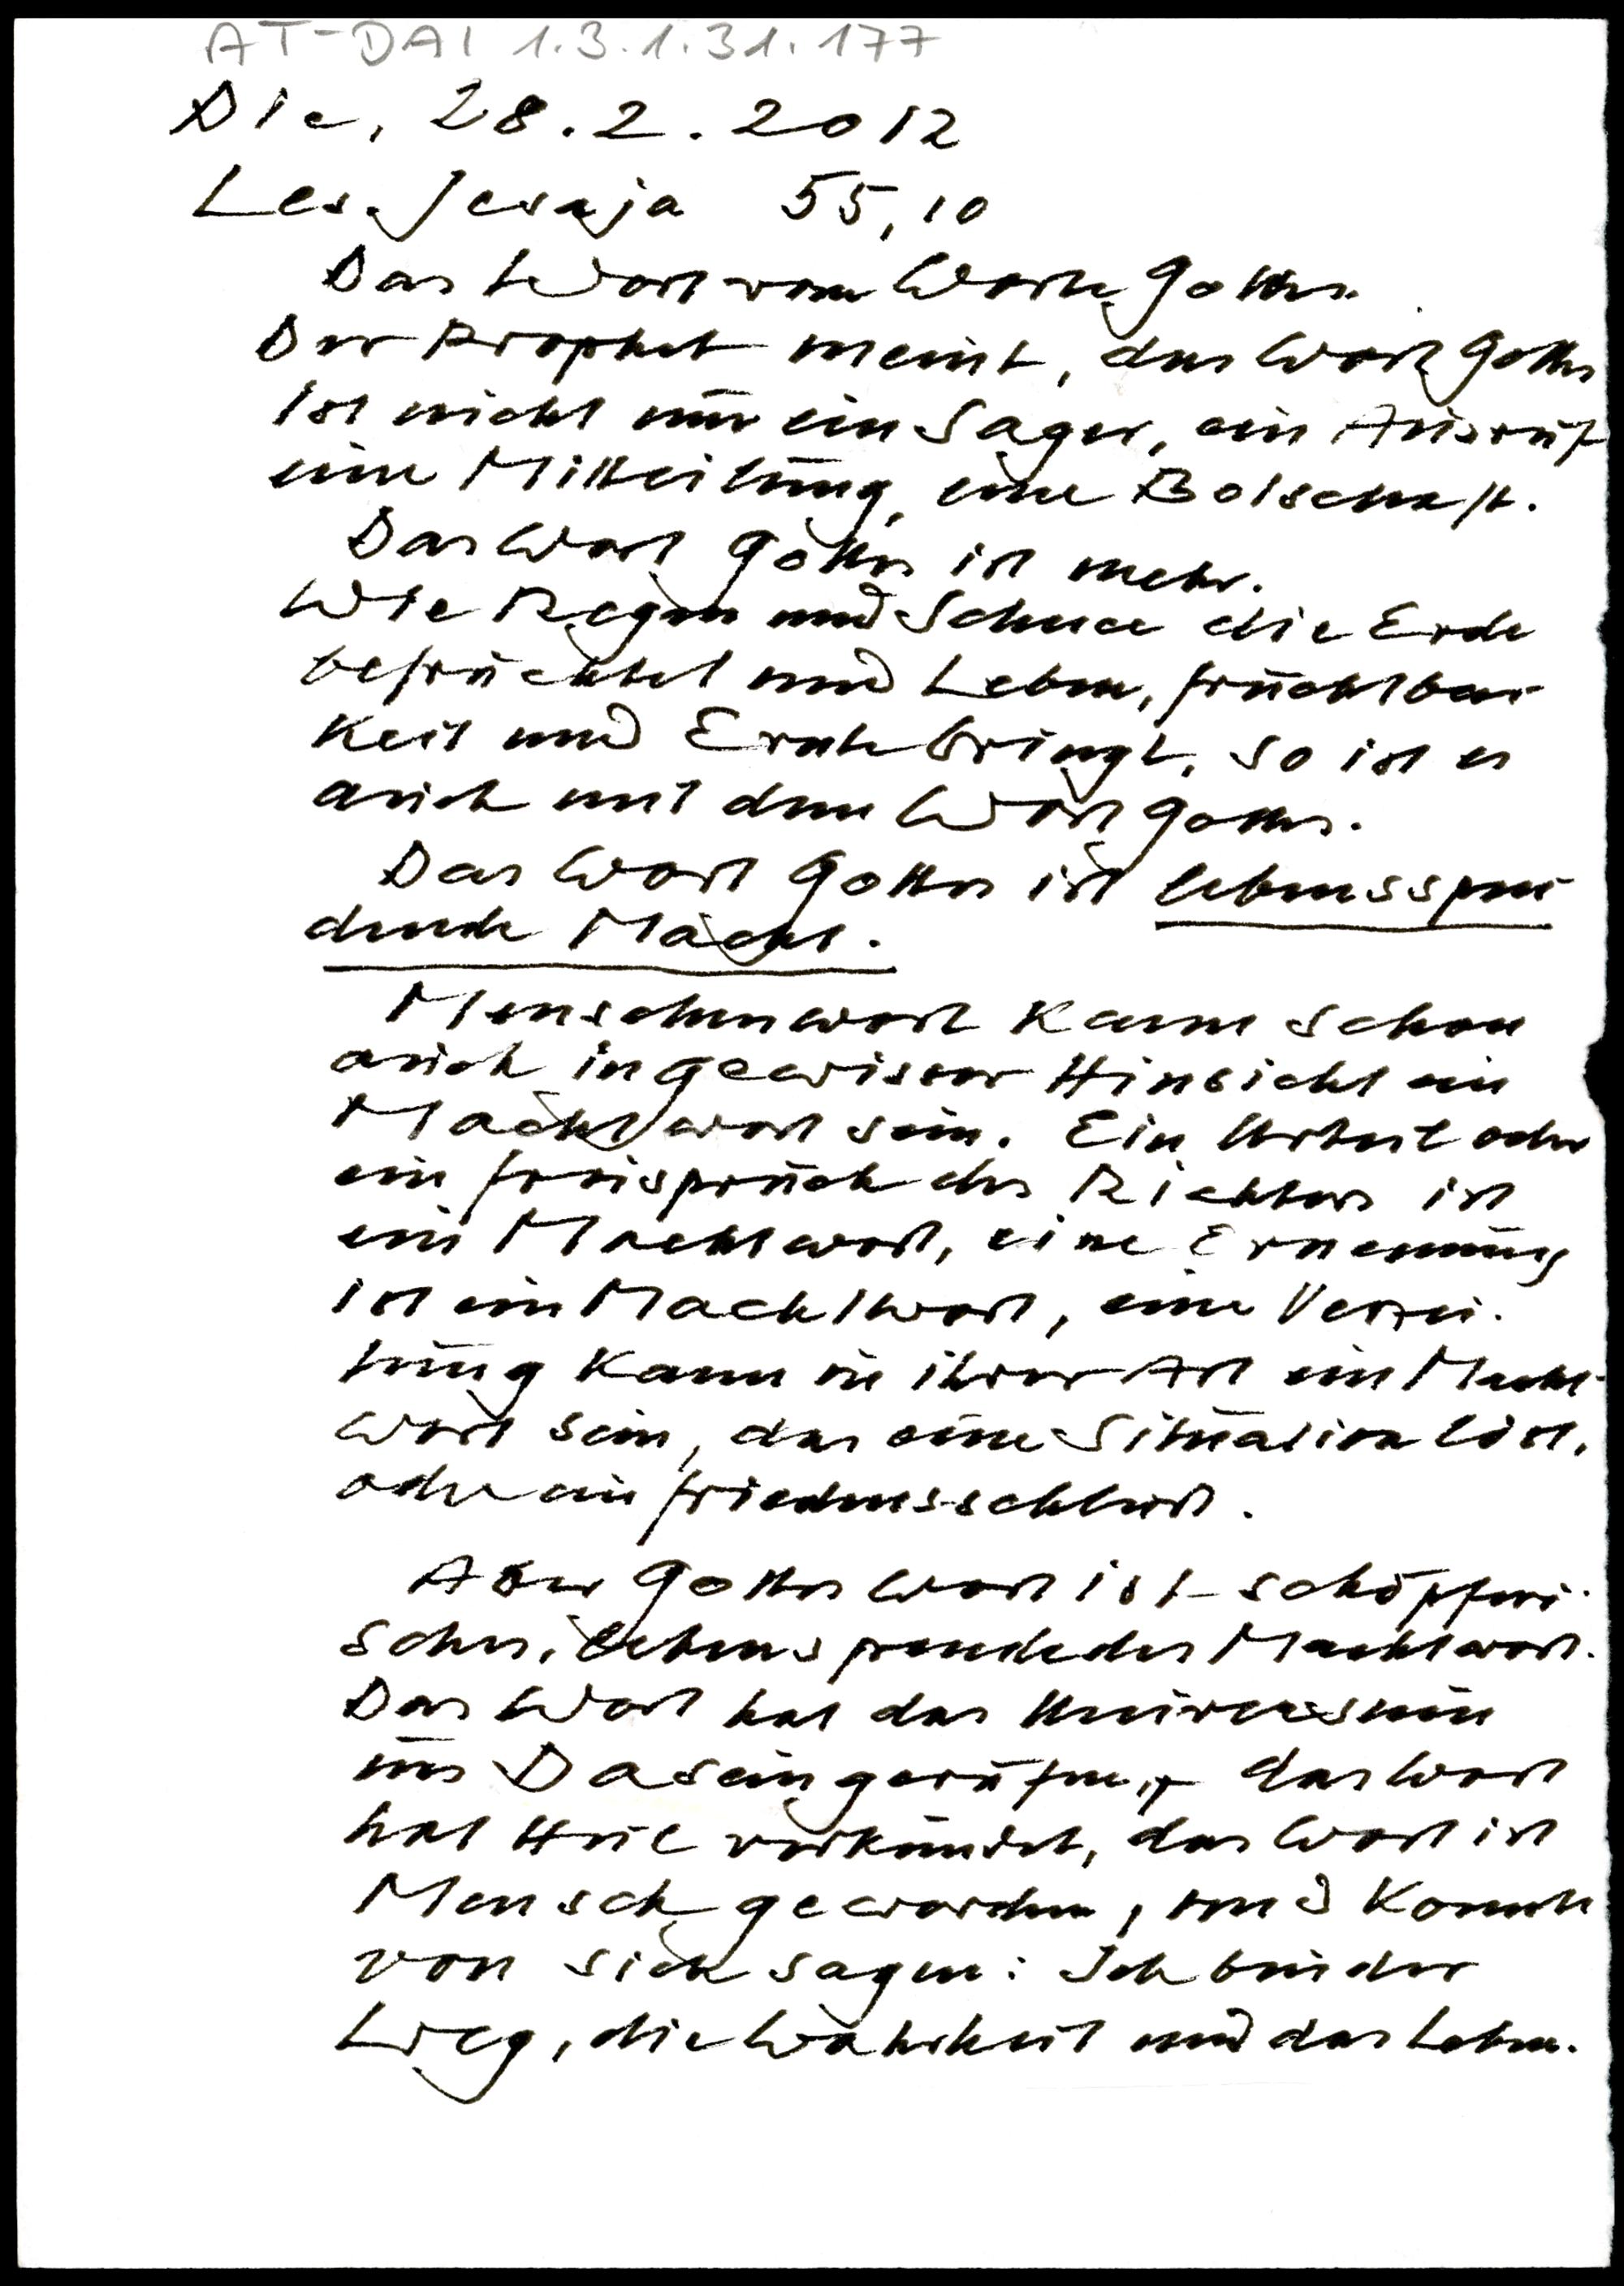 AT-DAI 1.3.1.31.177
Die, 28.2.2012
Les. Jesaja 55,10
Das Wort vom Worte Gottes.
Der Prophet meint, das Wort Gottes
ist nicht nur ein Sager, ein Ausruf
eine Mitteilung, eine Botschaft.
Das Wort Gottes ist mehr.
Wie Regen und Schnee die Erde
befruchtet und Leben, Fruchtbar
keit und Ernte bringt, so ist es
auch mit dem Wort Gottes.
Das Wort Gottes ist lebensspen
dende Macht.
Menschenwort kann schon
auch in gewisser Hinsicht ein
Machtwort sein. Ein Urteil oder
ein Freispruch des Richters ist
ein Machtwort, eine Ernennung
ist ein Machtwort, eine Verzei-
hung kann in ihrer Art ein Macht-
wort sein, das eine Situation löst,
oder ein Friedensschluß.
Aber Gottes Wort ist schöpferi-
sches, lebenspendendes Machtwort.
Das Wort hat das Universum
ins Dasein gerufen, das Wort
hat Heil verkündet, das Wort ist
Mensch geworden, und konnte
von sich sagen: Ich bin der
Weg, die Wahrheit und das Leben.